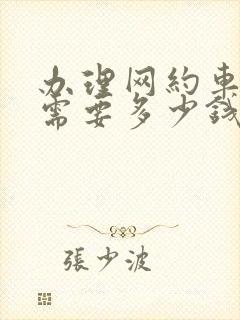 办理网约車
需要多少錢
張少波